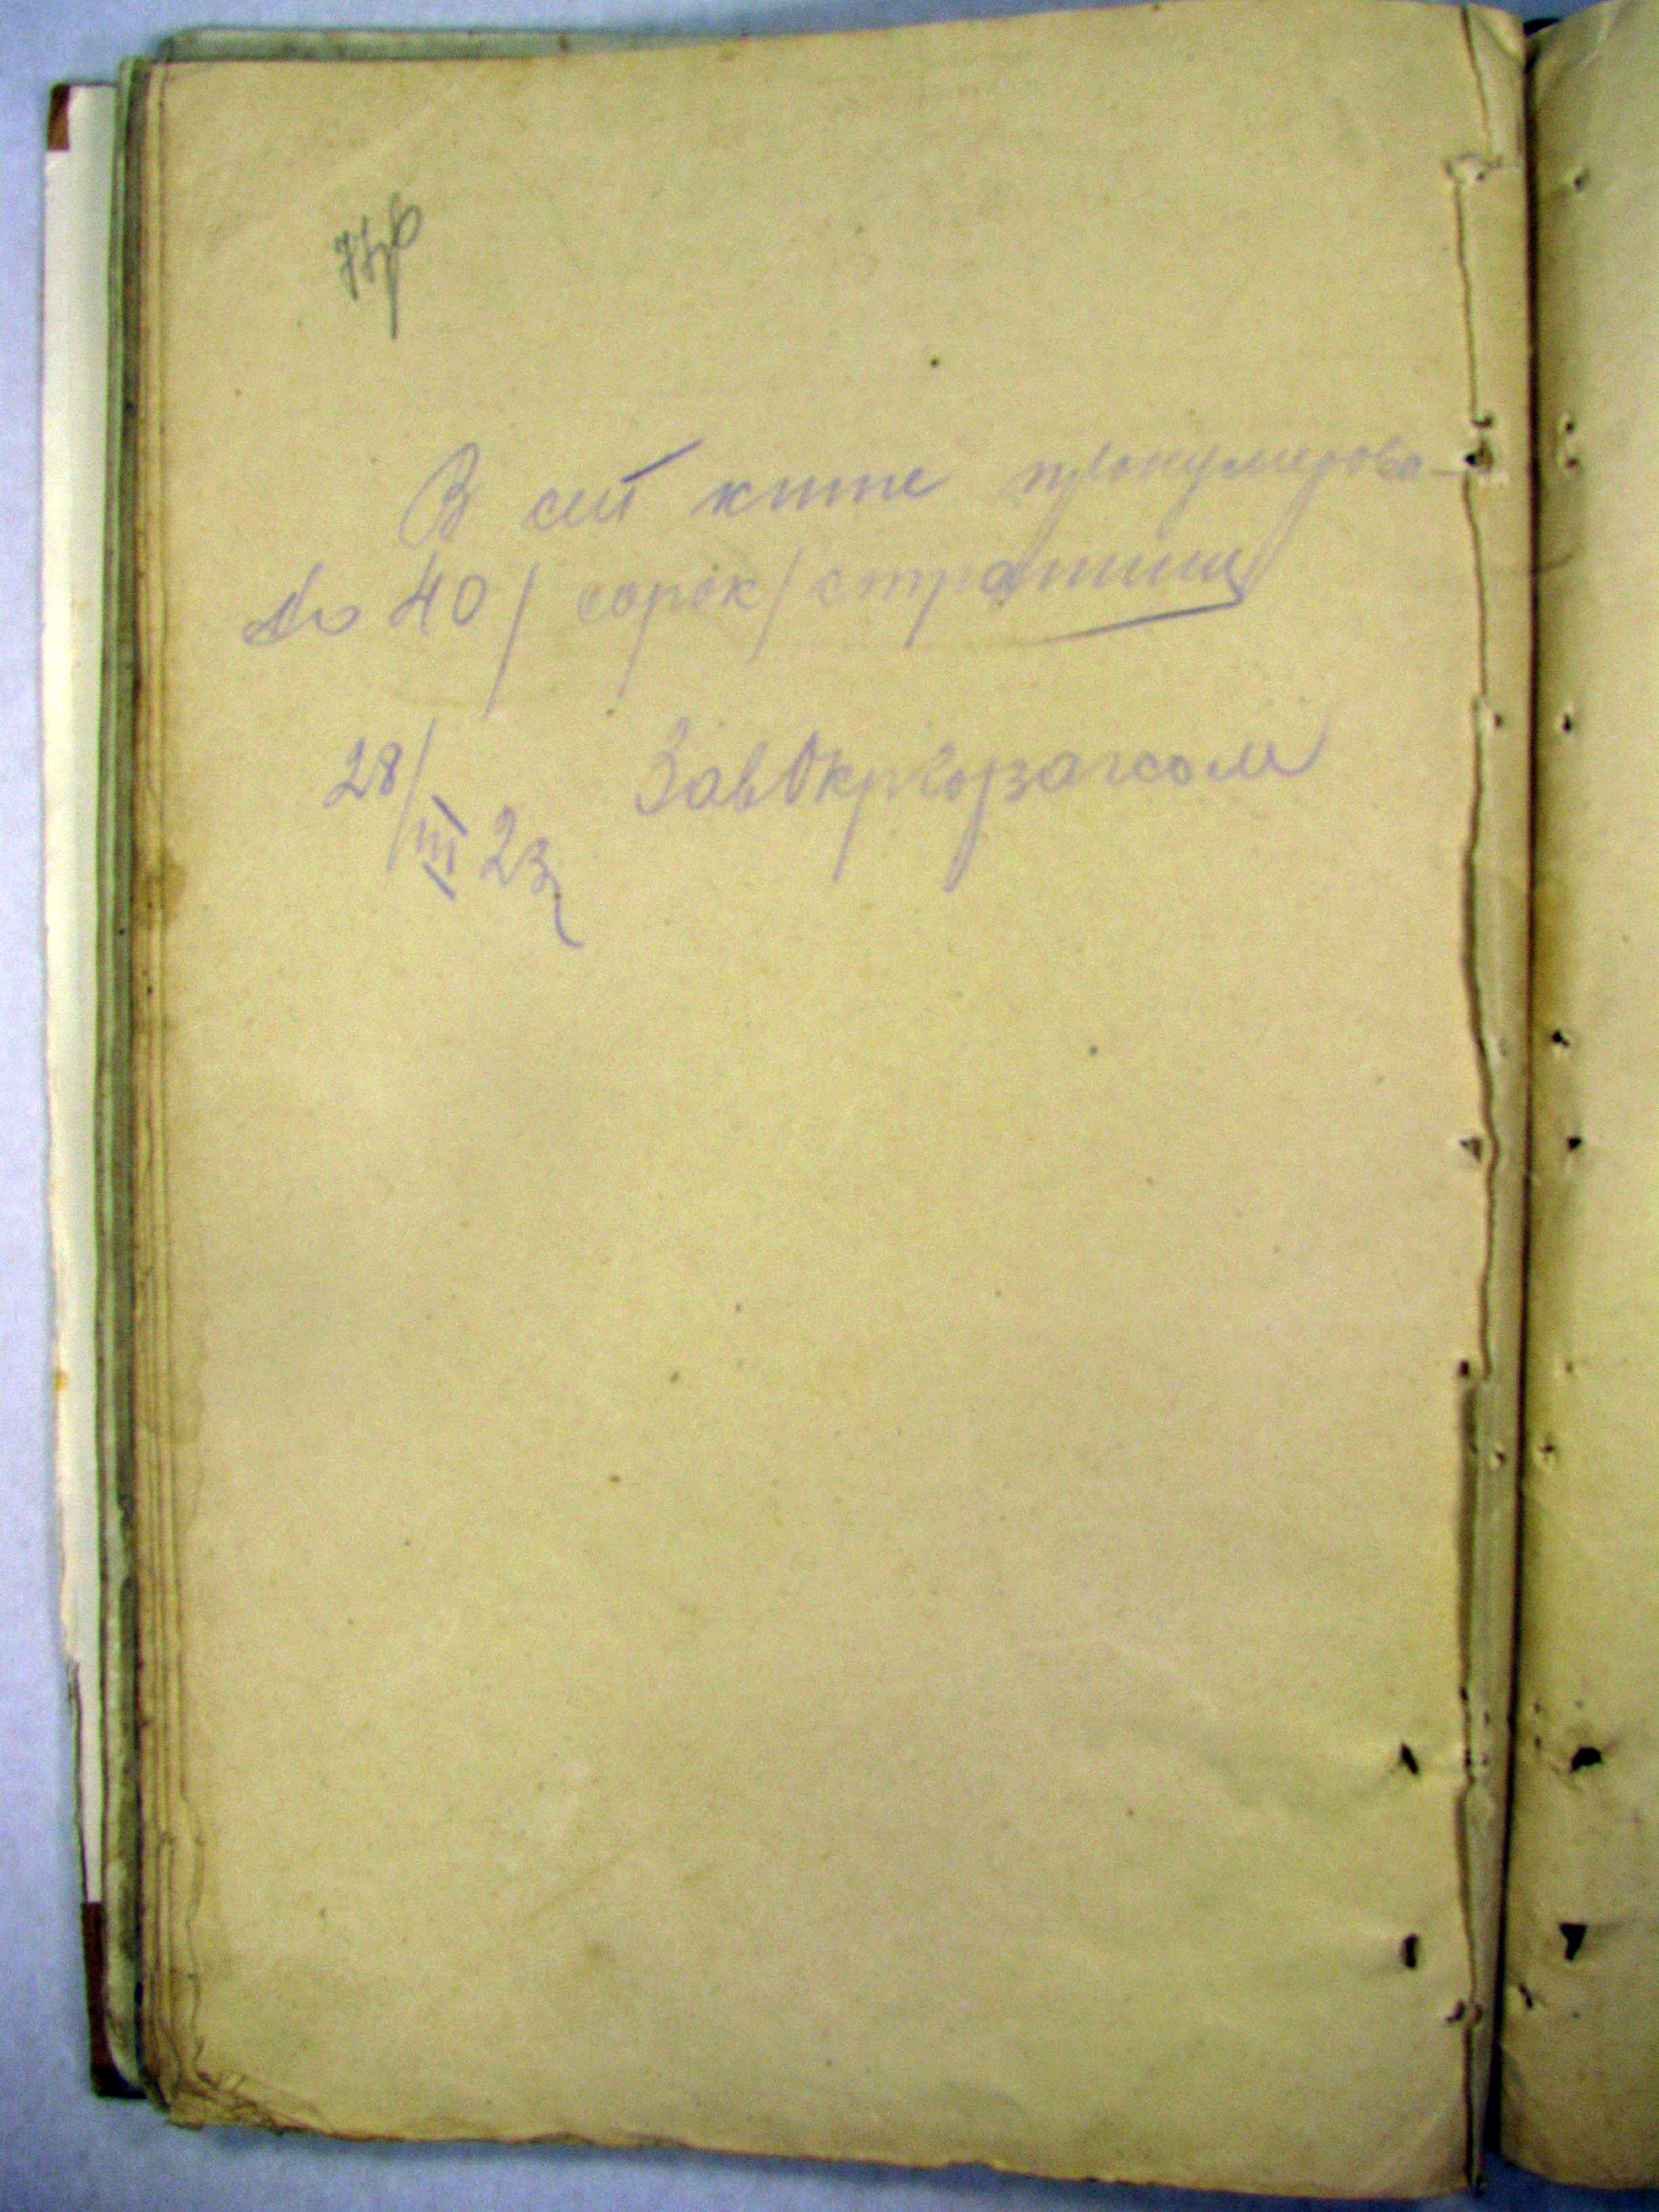 В сей книге пронумерова-
но 40 / сорок / страниц
28/III 23 ЗавОкргорзагсом